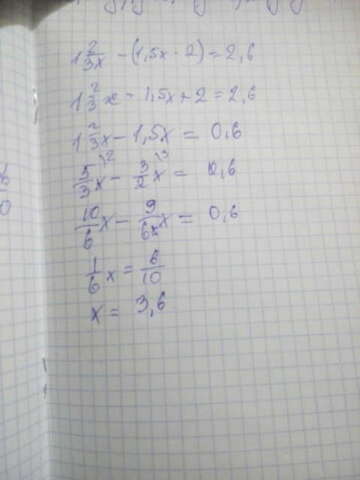 1 2/3x - (1,5x - 2) = 2,6
1 2/3 x - 1,5x + 2 = 2,6
1 2/3x - 1,5x = 0,6
5/3x - 3/2x = 0,6
10/6x - 9/6x = 0,6
1/6x = 6/10
x = 3,6